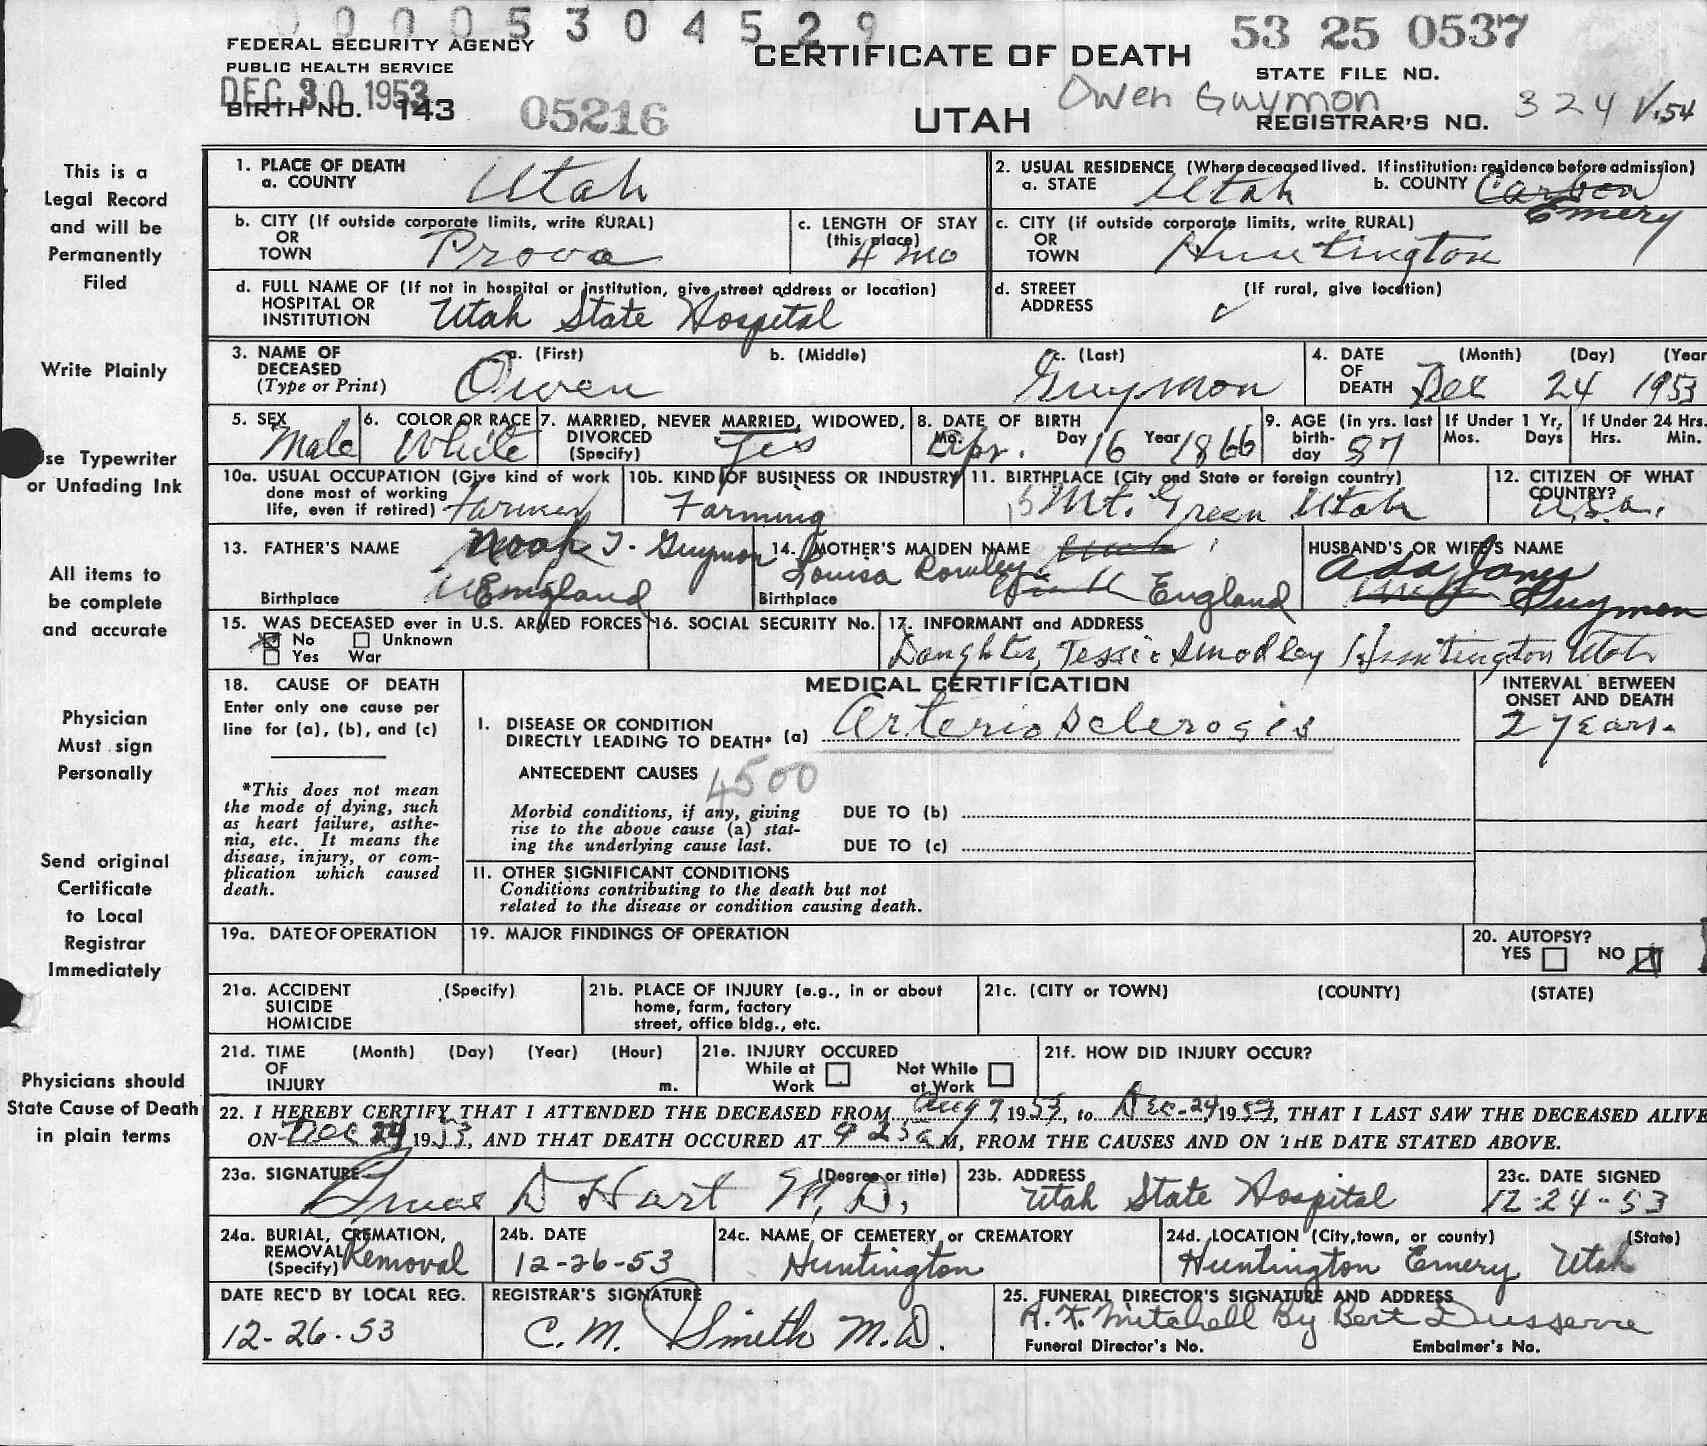 00005304529
FEDERAL SECURITY AGENCY
PUBLIC HEALTH SERVICE
DEC 30 1953
BIRTH NO. 143
05216
CERTIFICATE OF DEATH
UTAH
53 25 0537
STATE FILE NO.
Owen Guymon
REGISTRAR'S NO. 324
This is a
Legal Record
and will be
Permanently
Filed
Write Plainly
Use Typewriter
or Unfading Ink
All items to
be complete
and accurate
Physician
Must sign
Personally
Send original
Certificate
to Local
Registrar
Immediately
Physicians should
State Cause of Death
in plain terms
1. PLACE OF DEATH
a. COUNTY Utah
2. USUAL RESIDENCE (Where deceased lived. If institution: residence before admission)
a. STATE Utah b. COUNTY Carbon
Emery
b. CITY (If outside corporate limits, write RURAL)
OR
TOWN Provo
c. LENGTH OF STAY
(this place)
4 mo
c. CITY (if outside corporate limits, write RURAL)
OR
TOWN Huntington
d. FULL NAME OF (If not in hospital or institution, give street address or location)
HOSPITAL OR
INSTITUTION Utah State Hospital
d. STREET (If rural, give location)
ADDRESS
3. NAME OF
DECEASED
(Type or Print)
a. (First) b. (Middle) c. (Last)
Owen Guymon
4. DATE (Month) (Day) (Year
OF
DEATH Dec 24 1953
5. SEX
Male
6. COLOR OR RACE
White
7. MARRIED, NEVER MARRIED, WIDOWED,
DIVORCED
(Specify) Yes
8. DATE OF BIRTH
Mo. Apr. Day 16 Year 1866
9. AGE (in yrs. last
birth-
day 87
If Under 1 Yr,
Mos. Days
If Under 24 Hrs.
Hrs. Min.
10a. USUAL OCCUPATION (Give kind of work
done most of working
life, even if retired) Farmer
10b. KIND OF BUSINESS OR INDUSTRY
Farming
11. BIRTHPLACE (City and State or foreign country)
Mt. Green Utah
12. CITIZEN OF WHAT
COUNTRY?
U.S.A.
13. FATHER'S NAME Noah T. Guymon
Birthplace England
14. MOTHER'S MAIDEN NAME
Louisa Rowley
Birthplace England
HUSBAND'S OR WIFE'S NAME
Ada Jones
Guymon
15. WAS DECEASED ever in U.S. ARMED FORCES
No Unknown
Yes War
16. SOCIAL SECURITY No.
17. INFORMANT and ADDRESS
Daughter, Jessie Smodley Huntington Utah
18. CAUSE OF DEATH
Enter only one cause per
line for (a), (b), and (c)
*This does not mean
the mode of dying, such
as heart failure, asthe-
nia, etc. It means the
disease, injury, or com-
plication which caused
death.
MEDICAL CERTIFICATION
I. DISEASE OR CONDITION
DIRECTLY LEADING TO DEATH* (a) Arterio Sclerosis
INTERVAL BETWEEN
ONSET AND DEATH
2 years.
ANTECEDENT CAUSES 4500
Morbid conditions, if any, giving
rise to the above cause (a) stat-
ing the underlying cause last.
DUE TO (b)
DUE TO (c)
11. OTHER SIGNIFICANT CONDITIONS
Conditions contributing to the death but not
related to the disease or condition causing death.
19a. DATE OF OPERATION
19. MAJOR FINDINGS OF OPERATION
20. AUTOPSY?
YES NO
21a. ACCIDENT (Specify)
SUICIDE
HOMICIDE
21b. PLACE OF INJURY (e.g., in or about
home, farm, factory
street, office bldg., etc.
21c. (CITY or TOWN) (COUNTY) (STATE)
21d. TIME (Month) (Day) (Year) (Hour)
OF
INJURY m.
21e. INJURY OCCURED
While at Work
Not While at Work
21f. HOW DID INJURY OCCUR?
22. I HEREBY CERTIFY THAT I ATTENDED THE DECEASED FROM Aug 7 1953, to Dec-24 1953, THAT I LAST SAW THE DECEASED ALIVE
ON Dec 24 1953, AND THAT DEATH OCCURED AT 9 23 a M, FROM THE CAUSES AND ON THE DATE STATED ABOVE.
23a. SIGNATURE (Degree or title)
D Hart M.D.
23b. ADDRESS
Utah State Hospital
23c. DATE SIGNED
12-24-53
24a. BURIAL, CREMATION,
REMOVAL
(Specify) Removal
24b. DATE
12-26-53
24c. NAME OF CEMETERY or CREMATORY
Huntington
24d. LOCATION (City, town, or county) (State)
Huntington Emery Utah
DATE REC'D BY LOCAL REG.
12-26-53
REGISTRAR'S SIGNATURE
C.M. Smith M.D.
25. FUNERAL DIRECTOR'S SIGNATURE AND ADDRESS
Mitchell By Bert Dusserre
Funeral Director's No. Embalmer's No.